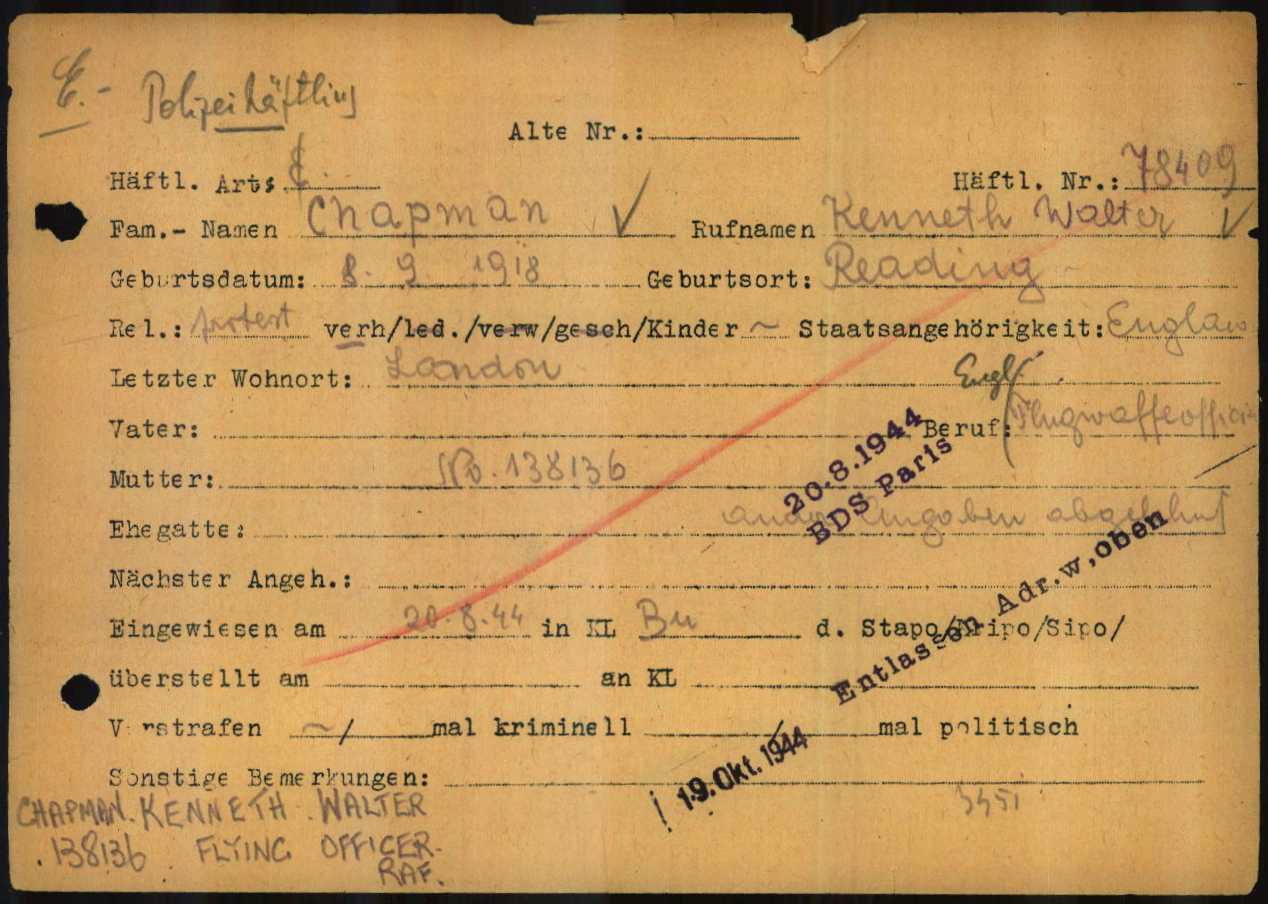 E.- Polizeihäftling
Alte Nr.:
Häftl. Art: Häftl. Nr.: 78409
Fam.- Namen Chapman Rufnamen Kenneth Walter
Geburtsdatum: 8. 9. 1918 Geburtsort: Reading
Rel.: protest verh/led./verw/gesch/Kinder ~ Staatsangehörigkeit: England
Letzter Wohnort: London
Engl.
Vater: Beruf: Flugwaffeoffizier
Mutter: No. 138136
20.8.1944
BDS Paris
Ehegatte: and. Angaben abgelehnt
Nächster Angeh.:
Eingewiesen am 20.8.44 in KL Bu d. Stapo/Kripo/Sipo/
überstellt am an KL
Entlassen Adr.w,oben
Vorstrafen ~/ mal kriminell / mal politisch
19. Okt. 1944
Sonstige Bemerkungen:
CHAPMAN. KENNETH. WALTER
.138136. FLYING OFFICER.
RAF.